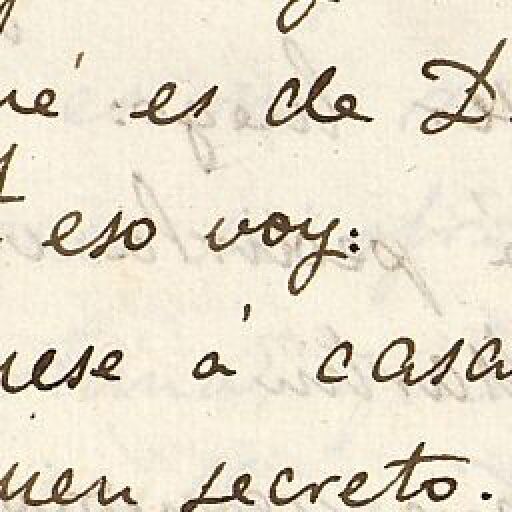 é es de D.
eso voy:
ese á casa
uen secreto.